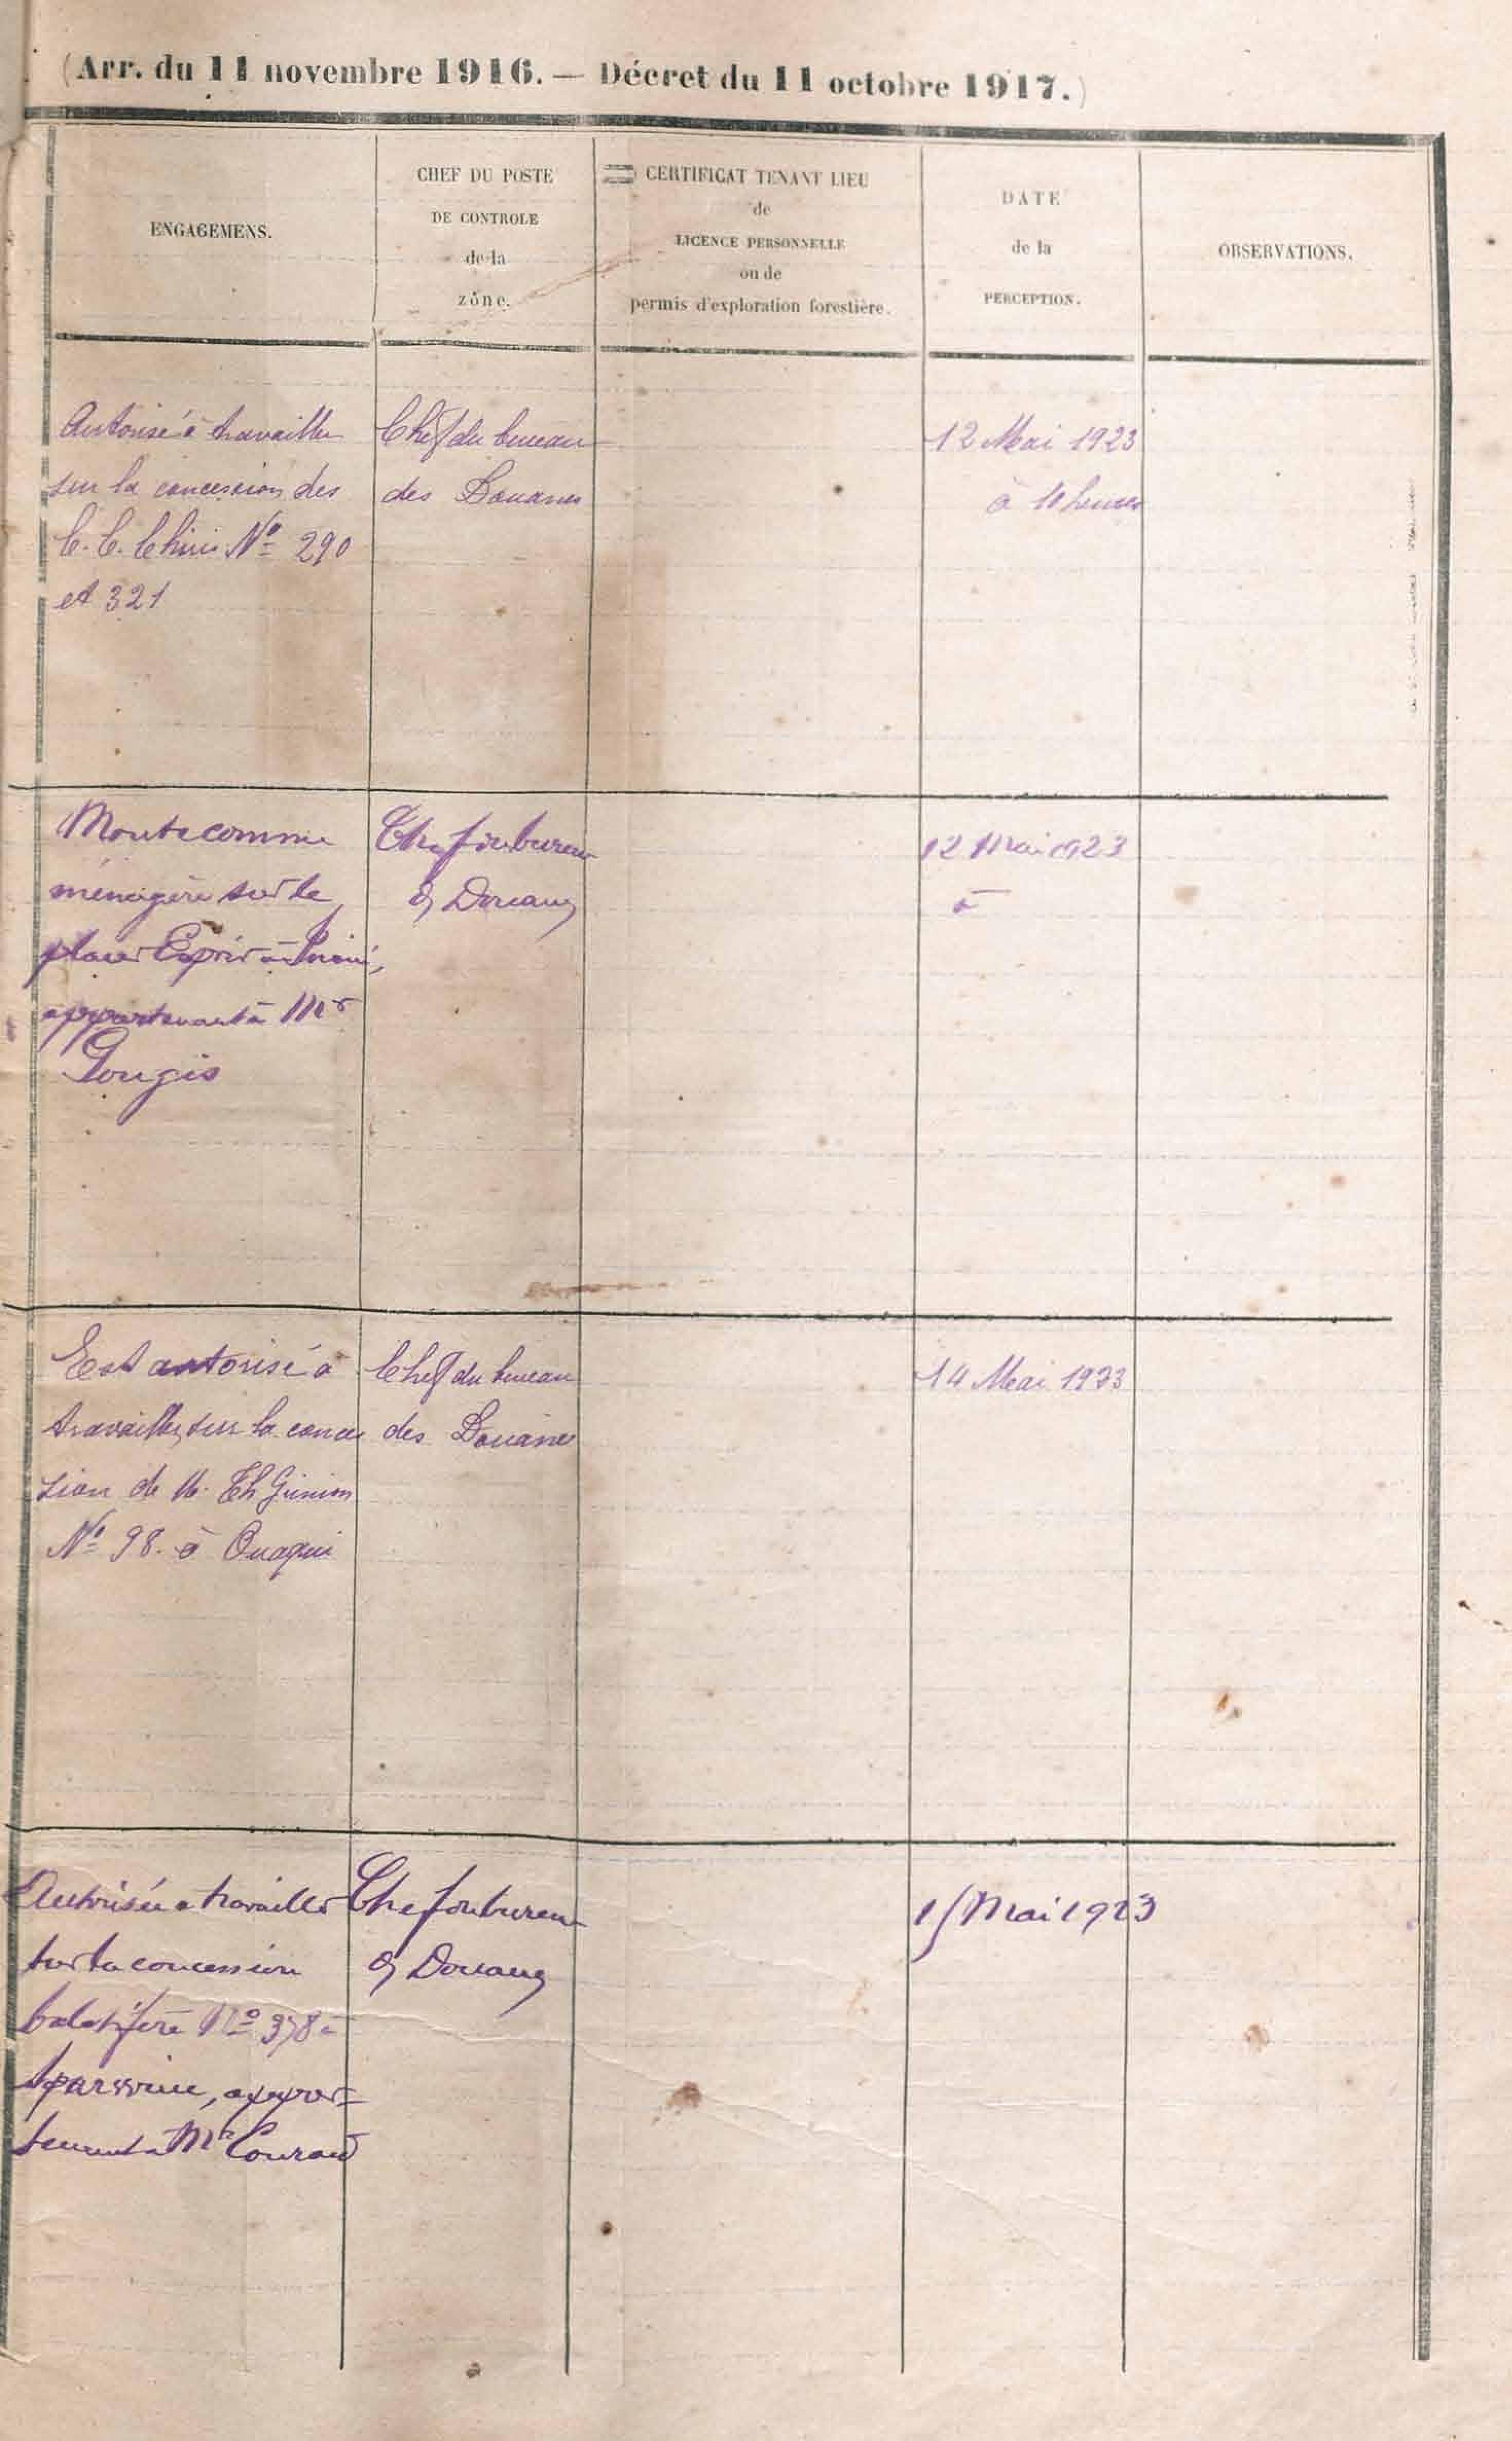 (Arr. du 11 novembre 1916. — Décret du 11 octobre 1917.)
ENGAGEMENS.
CHEF DU POSTE
DE CONTROLE
de la
zône.
CERTIFICAT TENANT LIEU
de
LICENCE PERSONNELLE
ou de
permis d'exploration forestière.
DATE
de la
PERCEPTION.
OBSERVATIONS.
Autorisé à travailler
sur la concession des
C. C. Chiris Nº 290
et 321
Chef du bureau
des Douanes
12 Mai 1923
à 10 heures
Monte comme
ménagère sur le
placer Espoir à
appartenant à Mr
Pougis
Chef du bureau
Douanes
12 Mai 1923
à
Est autorisé à
travailler sur la conces
sion de M. Th
Nº 98. à Ouaqui
Chef du bureau
des Douanes
14 Mai 1923
Autorisée à travailler
sur la concession
balatifère Nº 378 à
Sparwine, appar=
tenant à Mr Couraud
Chef du bureau
Douanes
15 Mai 1923